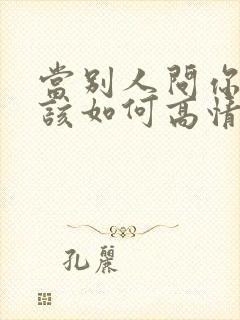 當別人問你
該如何高情
孔麗